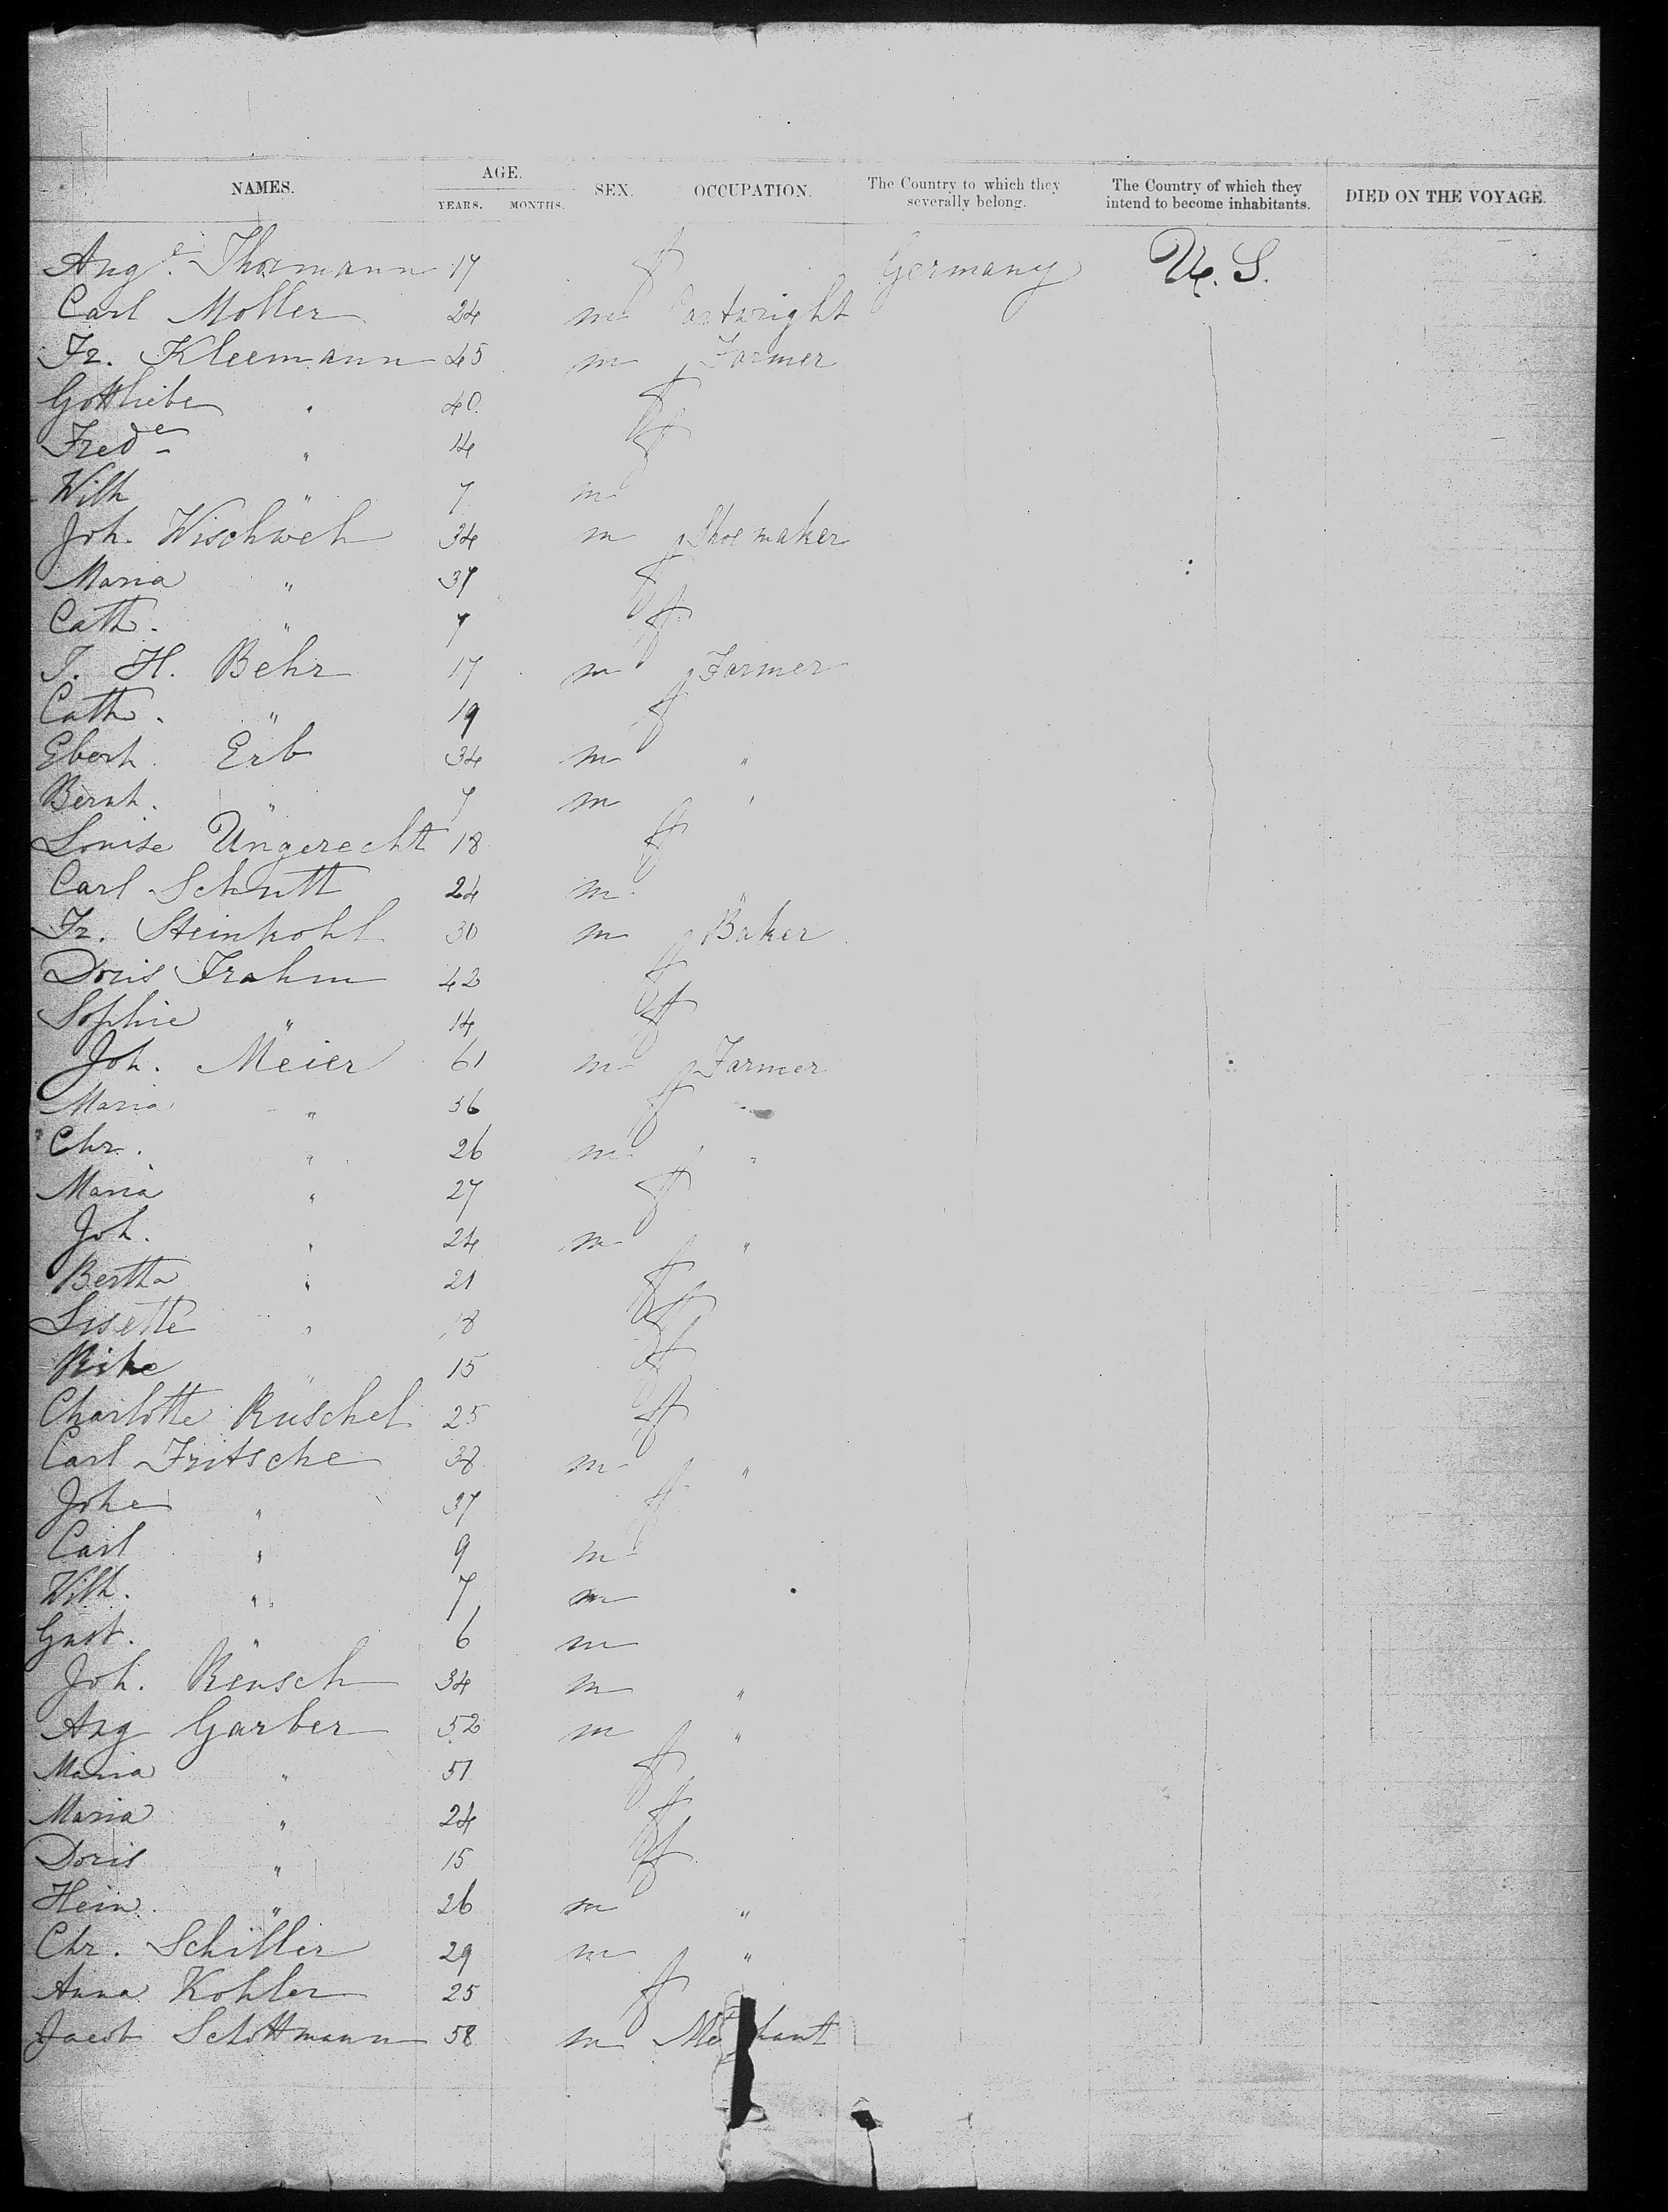 NAMES. AGE. SEX. OCCUPATION. The Country to which they severally belong. The Country of which they intend to become inhabitants. DIED ON THE VOYAGE.
YEARS. MONTHS.
Aug.e Thormann 17 f Germany U. S.
Carl Moller 24 m Cartwright
Fr. Kleemann 45 m Farmer
Gottliebe " 40 f
Fred.e " 14 f
Wilh " 7 m
Joh. Wischweh 34 m Shoemaker
Maria " 37 f
Cath. " 7 f
J. H. Behr 17 m Farmer
Cath. " 19 f
Eberh. Erb 34 m "
Bernh. " 7 m "
Louise Ungerecht 18 f
Carl Schutt 24 m "
Fr. Steinkohl 30 m Baker
Doris Frahm 42 f
Sophie " 14 f
Joh. Meier 61 m Farmer
Maria " 56 f
Chr. " 26 m "
Maria " 27 f
Joh. " 24 m "
Bertha " 21 f
Lisette " 18 f
Rike " 15 f
Charlotte Ruschel 25 f
Carl Fritsche 38 m "
Johe " 37 f
Carl " 9 m
Wilh. " 7 m
Gust. " 6 m
Joh. Reusch 34 m "
Aug Garber 52 m "
Maria " 51 f
Maria " 24 f
Doris " 15 f
Hein. " 26 m "
Chr. Schiller 29 m "
Anna Kohler 25 f
Jacob Schottmann 58 m